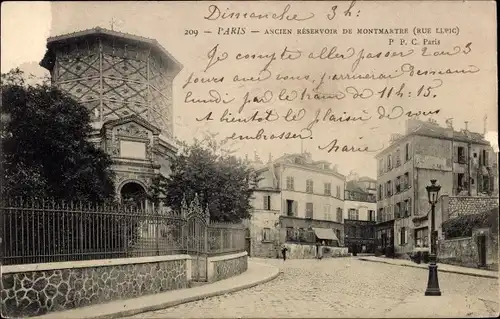 Dimanche 3h.
209 - PARIS - ANCIEN RÉSERVOIR DE MONTMARTRE (RUE LEPIC)
P P. C. Paris
Je compte aller passer 2 ou 3
jours avec vous, j'arriverai demain
lundi par le train de 11h.15.
à bientôt le plaisir de vous
embrasser.
Marie